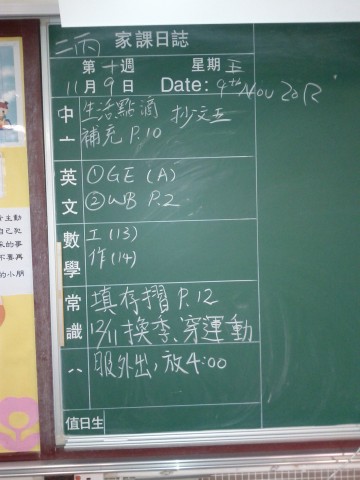 二丙 家課日誌
第十週 星期五
11月9日 Date: 9th Nov 2012
中一 生活點滴 抄文五
補充 P.10
英文 ①GE (A)
②WB P.2
數學 工(13)
作(14)
常識 填存摺 P.12
12/11 換季、穿運動
八 服外出，放4:00
值日生
行主動
自己死
求的事
不要再
的小朋